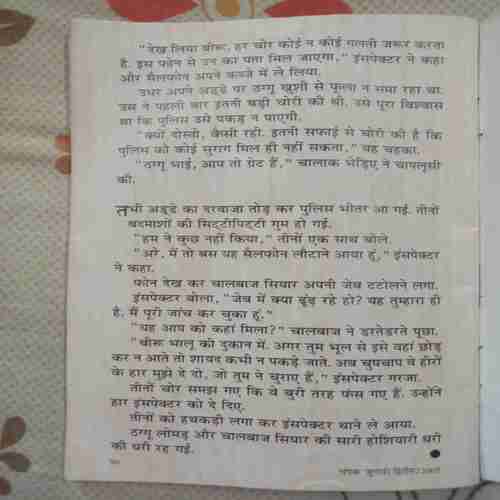 "देख लिया बीरू, हर चोर कोई न कोई गलती जरूर करता
है. इस फोन से उन का पता मिल जाएगा," इंसपेक्टर ने कहा
और सैलफोन अपने कब्जे में ले लिया.
उधर अपने अड्डे पर ठग्गू खुशी से फूला न समा रहा था.
उस ने पहली बार इतनी बड़ी चोरी की थी. उसे पूरा विश्वास
था कि पुलिस उसे पकड़ न पाएगी.
"क्यों दोस्तो, कैसी रही. इतनी सफाई से चोरी की है कि
पुलिस को कोई सुराग मिल ही नहीं सकता," वह चहका.
"ठग्गू भाई, आप तो ग्रेट हैं," चालाक भेड़िए ने चापलूसी
की.
तभी अड्डे का दरवाजा तोड़ कर पुलिस भीतर आ गई. तीनों
बदमाशों की सिट्टीपिट्टी गुम हो गई.
"हम ने कुछ नहीं किया," तीनों एक साथ बोले.
"अरे, मैं तो बस यह सैलफोन लौटाने आया हूं," इंसपेक्टर
ने कहा.
फोन देख कर चालबाज सियार अपनी जेब टटोलने लगा.
इंसपेक्टर बोला, "जेब में क्या ढूंढ़ रहे हो? यह तुम्हारा ही
है. मैं पूरी जांच कर चुका हूं."
"यह आप को कहां मिला?" चालबाज ने डरतेडरते पूछा.
"बीरू भालू की दुकान में. अगर तुम भूल से इसे वहां छोड़
कर न आते तो शायद कभी न पकड़े जाते. अब चुपचाप वे हीरों
के हार मुझे दे दो, जो तुम ने चुराए हैं," इंसपेक्टर गरजा.
तीनों चोर समझ गए कि वे बुरी तरह फंस गए हैं. उन्होंने
हार इंसपेक्टर को दे दिए.
तीनों को हथकड़ी लगा कर इंसपेक्टर थाने ले आया.
ठग्गू लोमड़ और चालबाज सियार की सारी होशियारी धरी
की धरी रह गई.
चंपक जुलाई (द्वितीय) 2007